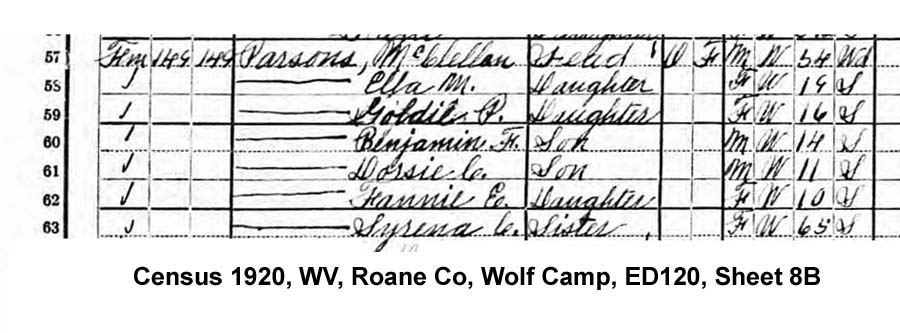 57 Fm 149 149 Parsons, McClellan Head 1 O F M W 54 Wd
58 Ella M. Daughter F W 19 S
59 Goldie P. Daughter F W 16 S
60 Benjamin F. Son M W 14 S
61 Dorsie C. Son M W 11 S
62 Fannie E. Daughter F W 10 S
63 Syrena C. Sister F W 65 S
Census 1920, WV, Roane Co, Wolf Camp, ED120, Sheet 8B